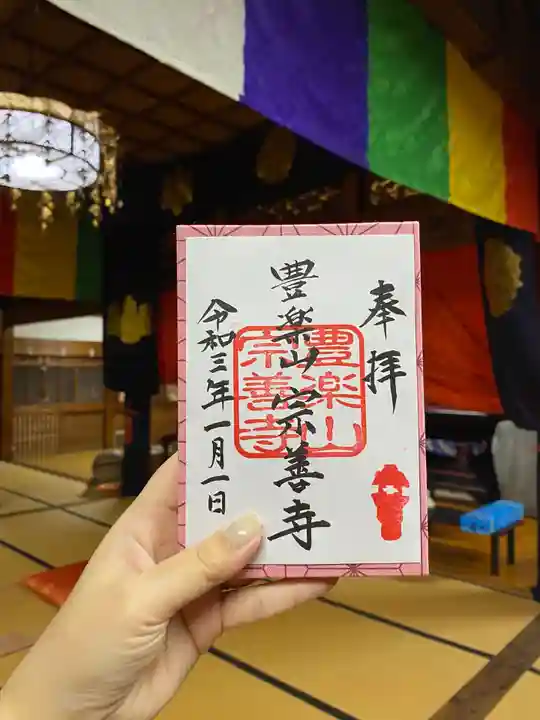 奉拝
豊楽山宗善寺
豊楽山
宗善寺
令和三年一月一日